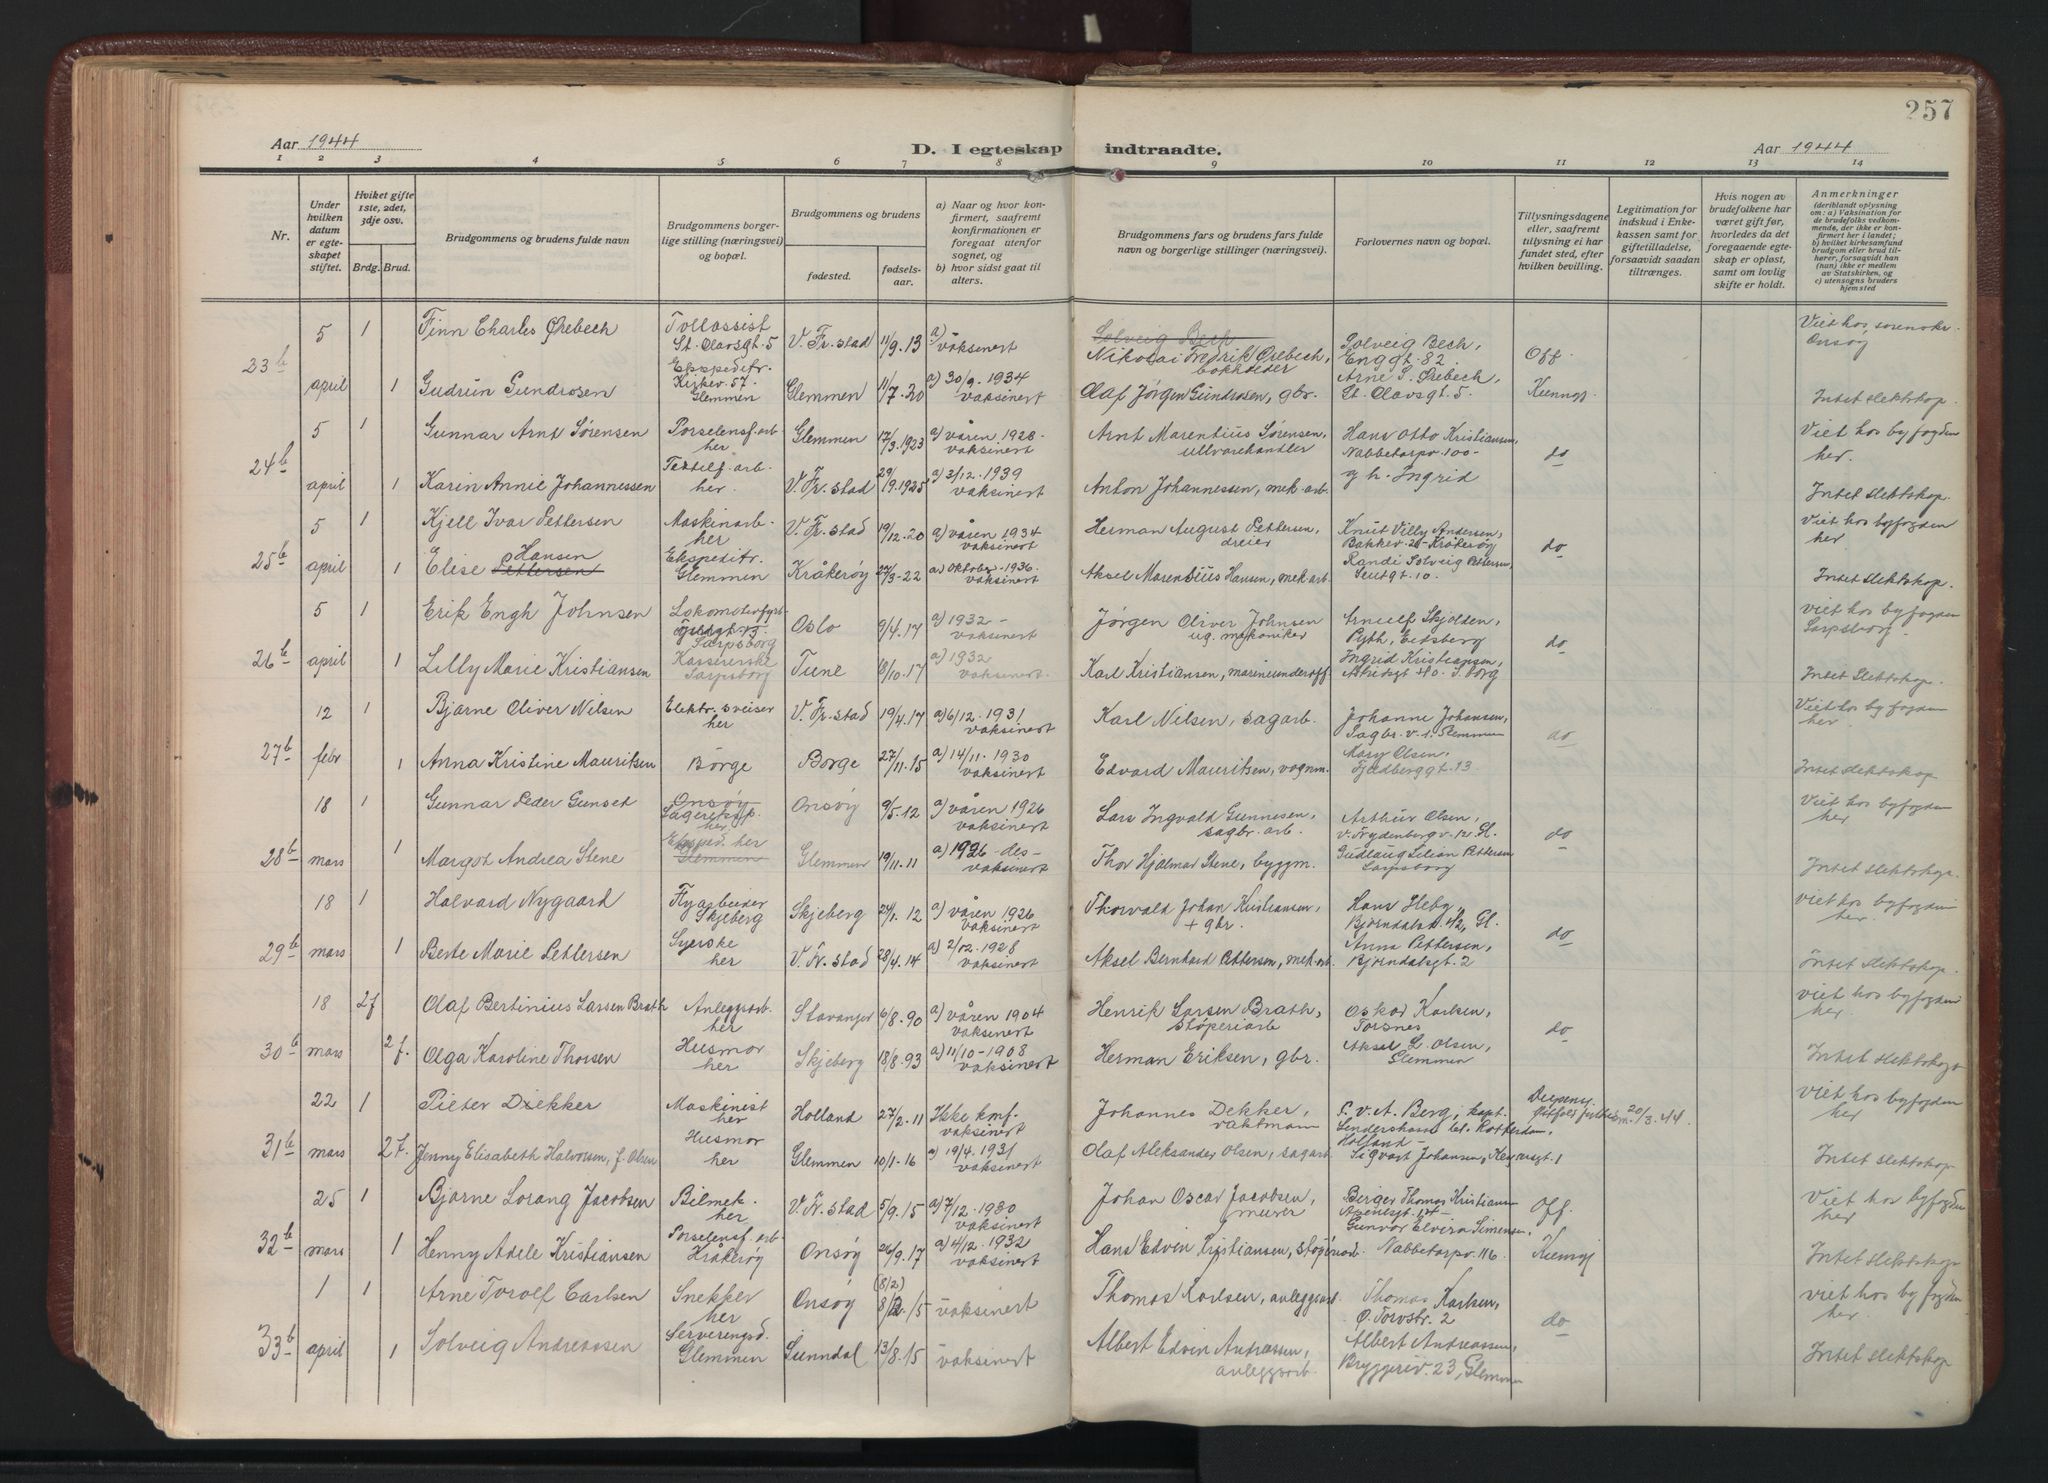 257
Aar 1944
D. I egteskap indtraadte.
Aar 1944
1 2 3 4 5 6 7 8 9 10 11 12 13 14
Nr.
Under hvilken datum er egteskapet stiftet.
Hvilket gifte 1ste, 2det, 3dje osv.
Brdg. Brud.
Brudgommens og brudens fulde navn
Brudgommens borgerlige stilling (næringsvei) og bopæl.
Brudgommens og brudens
fødested.
fødselsaar.
a) Naar og hvor konfirmert, saafremt konfirmationen er foregaat utenfor sognet, og
b) hvor sidst gaat til alters.
Brudgommens fars og brudens fars fulde navn og borgerlige stillinger (næringsvei).
Forlovernes navn og bopæl.
Tillysningsdagene eller, saafremt tillysning ei har fundet sted, efter hvilken bevilling.
Legitimation for indskud i Enkekassen samt for giftetilladelse, forsaavidt saadan tiltrænges.
Hvis nogen av brudefolkene har været gift før, hvorledes da det foregaaende egteskap er opløst, samt om lovlig skifte er holdt.
Anmerkninger
(deriblandt oplysning om: a) Vaksination for de brudefolks vedkommende, der ikke er konfirmert her i landet; b) hvilket kirkesamfund brudgom eller brud tilhører, forsaavidt han (hun) ikke er medlem av Statskirken, og c) utensogns bruders hjemsted
23b 5 april 1 Finn Charles Ørebech Tollassist St. Olavsgt. 5 V. Fr.stad 11/9.13 a) vaksinert
Solveig Bech
Nikolai Fredrik Ørebech, bokholder Solveig Bech, Enggt. 82. Off.
Viet hos sorenskr. Onsøy
1 Gudrun Gundrosen Ekspeditr. Kirkev. 57. Glemmen Glemmen 11/7.20 a) 30/9.1934 vaksinert
Olaf Jørgen Gundrosen, gbr. Arne S. Ørebech, St. Olavsgt. 5. Kunngj.
Intet slektskap.
24b 5 april 1 Gunnar Arnt Sørensen Porselensf.arb. her Glemmen 17/3.1923 a) våren 1928 - vaksinert
Arnt Marentius Sørensen, ullvarehandler Hans Otto Kristiansen, Nabbetorpv. 100 - do
Viet hos byfogden her.
1 Karin Annie Johannessen Textilf. arb. her. V. Fr. stad 29/9.1925 a) 3/12.1939 vaksinert
Anton Johannessen, mek.arb. og h. Ingrid
Intet slektskap.
25b 5 april 1 Kjell Ivar Pettersen Maskinarb. her V. Fr. stad 19/12.20 a) våren 1934 vaksinert
Herman August Pettersen, dreier Knut Villy Andersen, Bakkev. 21 - Kråkerøy do
Viet hos byfogden her
1 Elise Hansen Pettersen Ekspeditr. Glemmen Kråkerøy 27/3-22 a) oktober 1936. vaksinert
Aksel Marensius Hansen, mek.arb. Randi Solveig Pettersen,
Intet slektskap.
26b 5 april 1 Erik Engh Johnsen Lokomotivfyrb. Sarpsborg Oslo 9/4.17 a) 1932 - vaksinert
Jørgen Oliver Johnsen ug. mekaniker Arnulf Skjolden, Eidsberg do
viet hos byfogden Sarpsborg
1 Lilly Marie Kristiansen Kassererske Sarpsborg Tune 8/10.17 a) 1932 vaksinert.
Karl Kristiansen, marineunderoff. Ingrid Kristiansen, Astridsgt 40. S.borg
Intet slektskap.
27b 12 febr 1 Bjarne Oliver Nilsen Elektr. sveiser her V. Fr. stad 19/4.17 a) 6/12.1931 vaksinert
Karl Nilsen, sagarb. Johanne Johansen, Sagbr.v. 1. Glemmen do
Viet hos byfogden her
1 Anna Kristine Mauritsen Borge Borge 27/11.15 a) 14/11.1930 vaksinert
Edvard Mauritsen, vognm. Mary Olsen, Fjeldberggt. 13
Intet slektskap
28b 18 mars 1 Gunnar Peder Gunset Onsøy Lagereksp. her Onsøy 9/5.12 a) våren 1926 vaksinert
Lars Ingvald Gunnesen, sagbr. arb. Arthur Olsen, v. Nydenberg v. 12 Gl. do
Viet hos byfogden her
1 Margot Andrea Stene Eksped. her Glemmen Glemmen 19/11.11 a) 1926 - des - vaksinert
Thor Hjalmar Stene, byggm. Gudlaug Lilian Pettersen Sarpsborg
Intet slektskap.
29b 18 mars 1 Halvard Nygaard Flyarbeider Skjeberg Skjeberg 24/1.12 a) våren 1926 vaksinert
Thorvald Johan Kristiansen, + gbr. Hans Heby, Bjørndalsd. 42, Gl. do
viet hos byfogden her.
1 Berte Marie Pettersen Syerske her V. Fr. stad 28/4.14 a) 2/12.1928 vaksinert
Aksel Bernhard Pettersen, mek.arb. Anna Pettersen, Bjørndalsgt. 2
Intet slektskap.
30b 18 mars 2f Olaf Bertinius Larsen Brath Anleggsarb. her Stavanger 6/8.90 a) våren 1904 vaksinert
Henrik Larsen Brath, støperiarb Oskar Karlsen, Torsnes do
viet hos byfogden her
2f. Olga Karoline Thorsen Husmor her Skjeberg 18/8.93 a) 11/10-1908 vaksinert
Herman Eriksen, gbr. Aksel L. Olsen, Glemmen
Intet slektskap
31b 22 mars 1 Pieter Dekker Maskinist her Holland 27/2.11 Ikke konf. vaksinert
Johannes Dekker, vaktmann P. v. A. Berg, kapt. Rotterdam, Holland - 20/3.44.
Viet hos byfogden her
2f. Jenny Elisabeth Halvorsen, f. Olsen Husmor her Glemmen 10/1.16 a) 19/4.1931 vaksinert
Olaf Aleksander Olsen, sagarb Sigvart Johansen,
Intet slektskap
32b 25 mars 1 Bjarne Lorang Jacobsen Bilmek. her V. Fr. stad 5/9.15 a) 7/12.1930 vaksinert
Johan Oscar Jacobsen, murer Birger Thomas Kristiansen Off.
Viet hos byfogden her
1 Henny Adele Kristiansen Porselensf. arb. Kråkerøy Onsøy 26/9.17 a) 4/12.1932 vaksinert
Hans Edvin Kristiansen, Gunvor Elvira Simensen, Nabbetorpv. 116. Kunngj
Intet slektskap
33b 1 april 1 Arne Torolf Carlsen Snekker her Onsøy (8/2) 8/2.15 vaksinert
Thomas Karlsen, anleggsarb. Thomas Karlsen, Ø. Torvstr. 2 do
viet hos byfogden her
1 Solveig Andreassen Serveringsd. Glemmen Sunndal 13/8.15 vaksinert
Albert Edvin Andreassen, anleggsarb. Albert Andreassen, Bryggeriv. 23, Glemmen
Intet slektskap